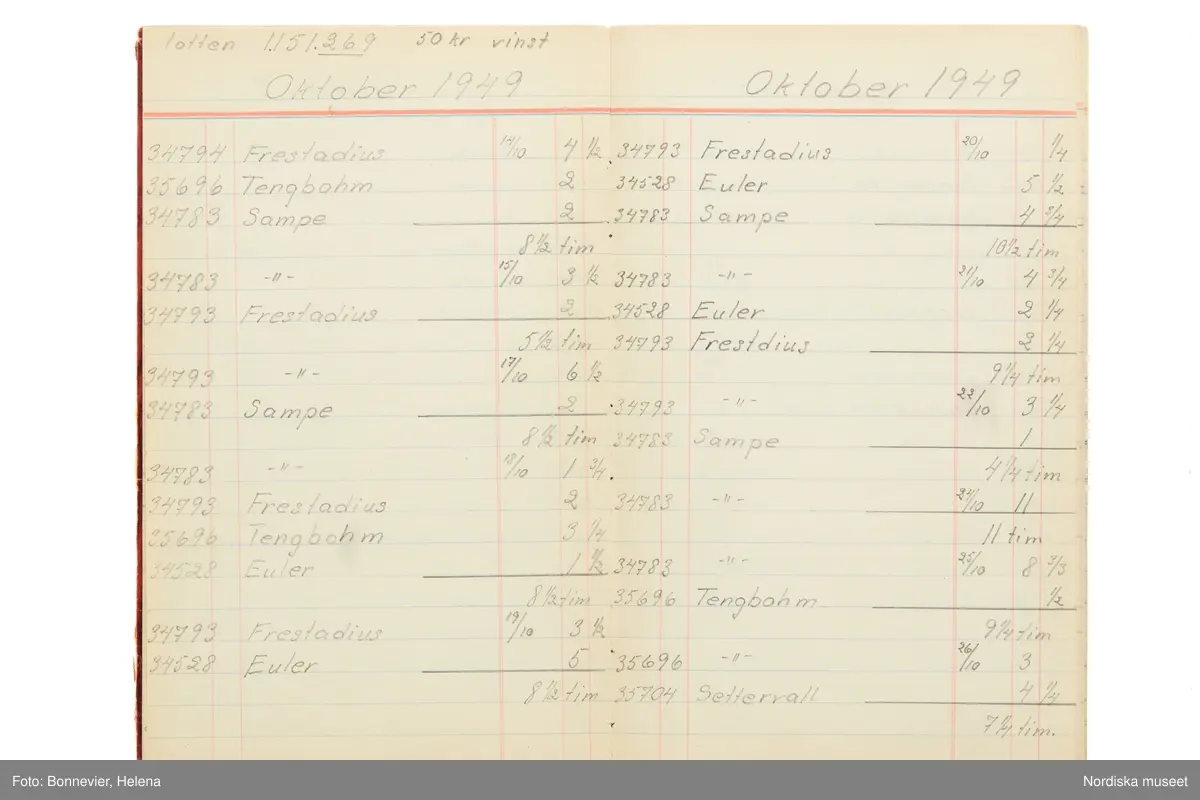 lotten 1.151.269 50 kr vinst
Oktober 1949
34794 Frestadius 14/10 4 1/2
35696 Tengbohm 2
34783 Sampe 2
8 1/2 tim
34783 -"- 15/10 3 1/2
34793 Frestadius 2
5 1/2 tim
34793 -"- 17/10 6 1/2
34783 Sampe 2
8 1/2 tim
34783 -"- 18/10 1 3/4
34793 Frestadius 2
35696 Tengbohm 3 1/4
34528 Euler 1 1/2
8 1/2 tim
34793 Frestadius 19/10 3 1/2
34528 Euler 5
8 1/2 tim
Oktober 1949
34793 Frestadius 20/10 1/4
34528 Euler 5 1/2
34783 Sampe 4 3/4
10 1/2 tim
34783 -"- 21/10 4 3/4
34528 Euler 2 1/4
34793 Frestdius 2 1/4
9 1/4 tim
34793 -"- 22/10 3 1/4
34783 Sampe 1
4 1/4 tim
34783 -"- 24/10 11
11 tim
34783 -"- 25/10 8 3/3
35696 Tengbohm 1/2
9 1/4 tim
35696 -"- 26/10 3
35704 Setterrall 4 1/4
7 1/4 tim.
Foto: Bonnevier, Helena
Nordiska museet